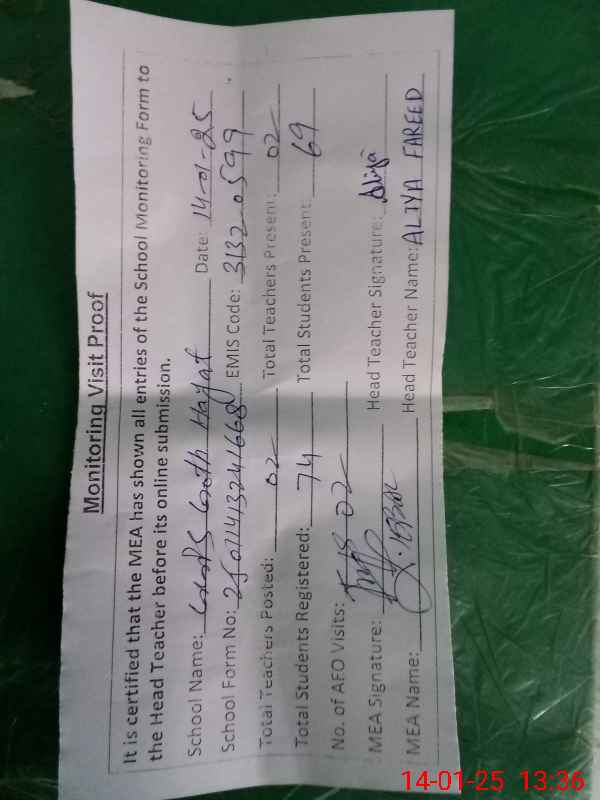 Monitoring Visit Proof
It is certified that the MEA has shown all entries of the School Monitoring Form to
the Head Teacher before its online submission.
School Name: Hayat Date: 14-01-25
School Form No: EMIS Code: 31320599
Total Teachers Posted: 02 Total Teachers Present: 02
Total Students Registered: 74 Total Students Present: 69
No. of AFO Visits: 02
MEA Signature: Head Teacher Signature: Aliya
MEA Name: Head Teacher Name: ALIYA FAREED
14-01-25 13:36